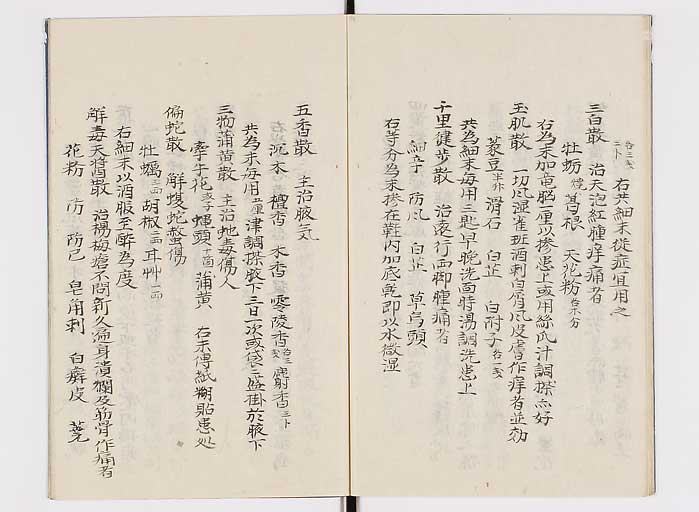 右共細末従症宜用之
三白散 治天泡紅腫痒痛者
牡蛎 葛根 天花粉
右為末加竜脳一厘以摻患上或用絲瓜汁調搽亦好
玉肌散 一切風湿雀斑酒刺白屑風皮膚作痒者並効
菉豆半升 滑石 白芷 白附子
共為細末毎用三匙早晩洗面時湯調洗患上
千里健歩散 治遠行両脚腫痛者
細辛 防風 白芷 草烏頭
右等分為末摻在鞋内加底乾即以水微湿
五香散 主治腋気
沉木 檀香 木香 零陵香 麝香
共為末毎用 津調搽腋下三日一次或袋 盛掛於腋下
三物蒲黄散 主治虵毒傷人
牽子花 蝠頭 蒲黄 右末傅紙糊貼患処
偏蛇散 解蝮蛇螫傷
牡蠣 胡椒
右細末以酒服至酔為度
解毒天漿散 治楊梅瘡不問新久遍身潰爛及筋骨作痛者
花粉 防 防已 皂角刺 白癬皮